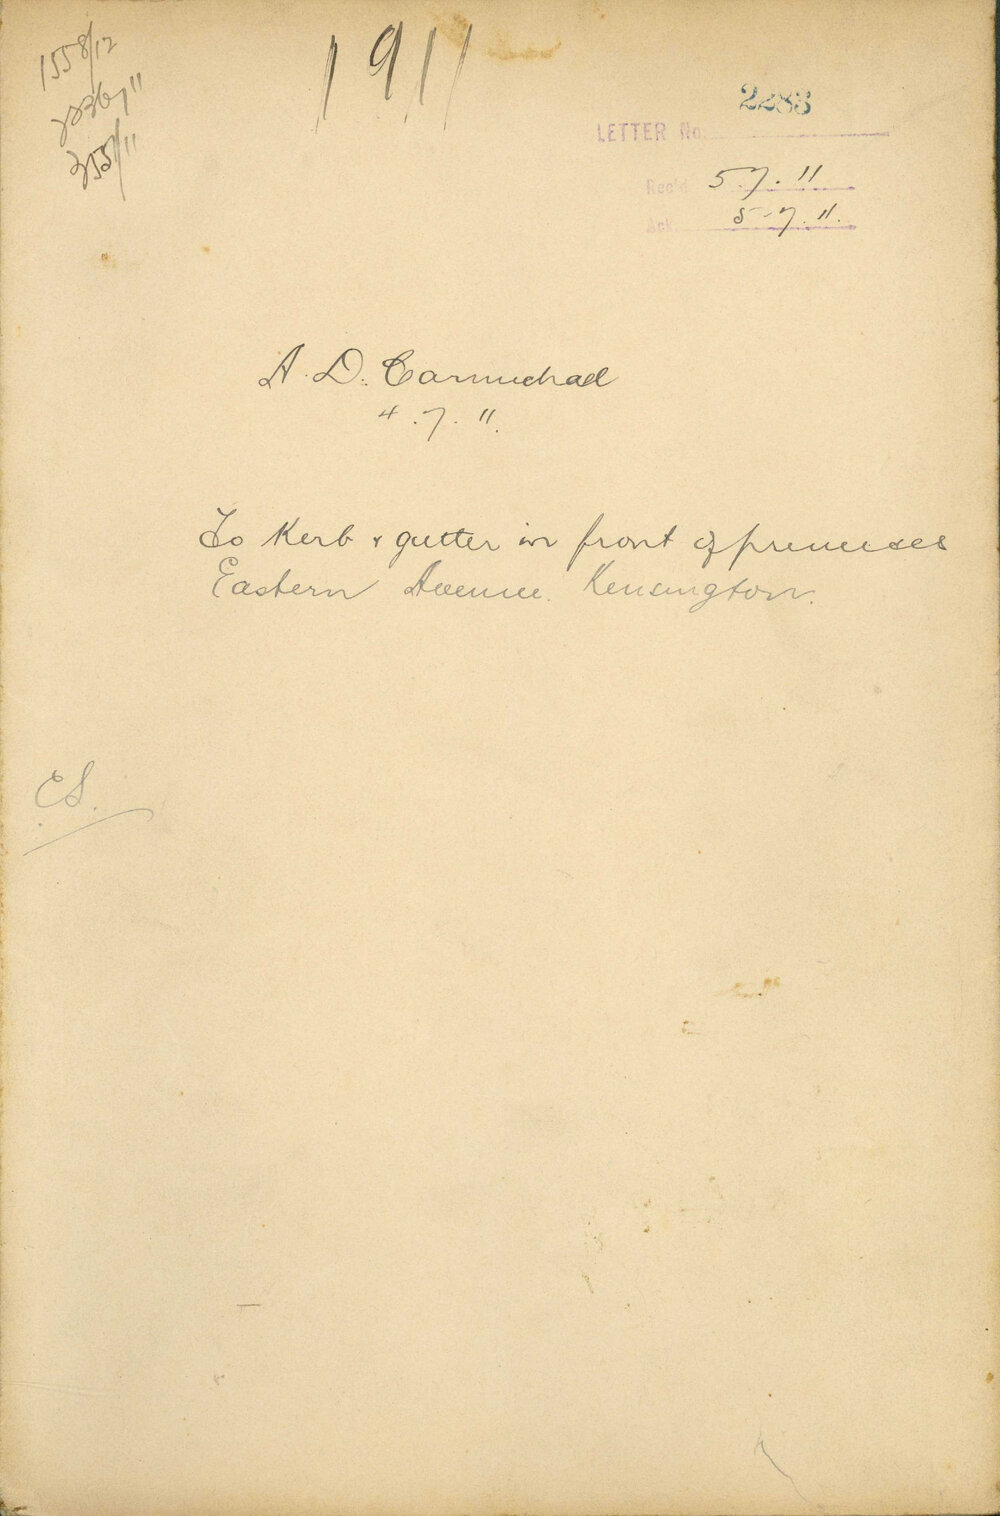 1558/12
1911
2283
LETTER No.
355/11
Rec'd 5.7.11
Ack. 5-7.11.
A. D. Carmichael
4.7.11.
To Kerb & gutter in front of premises
Eastern Avenue. Kensington.
ES.